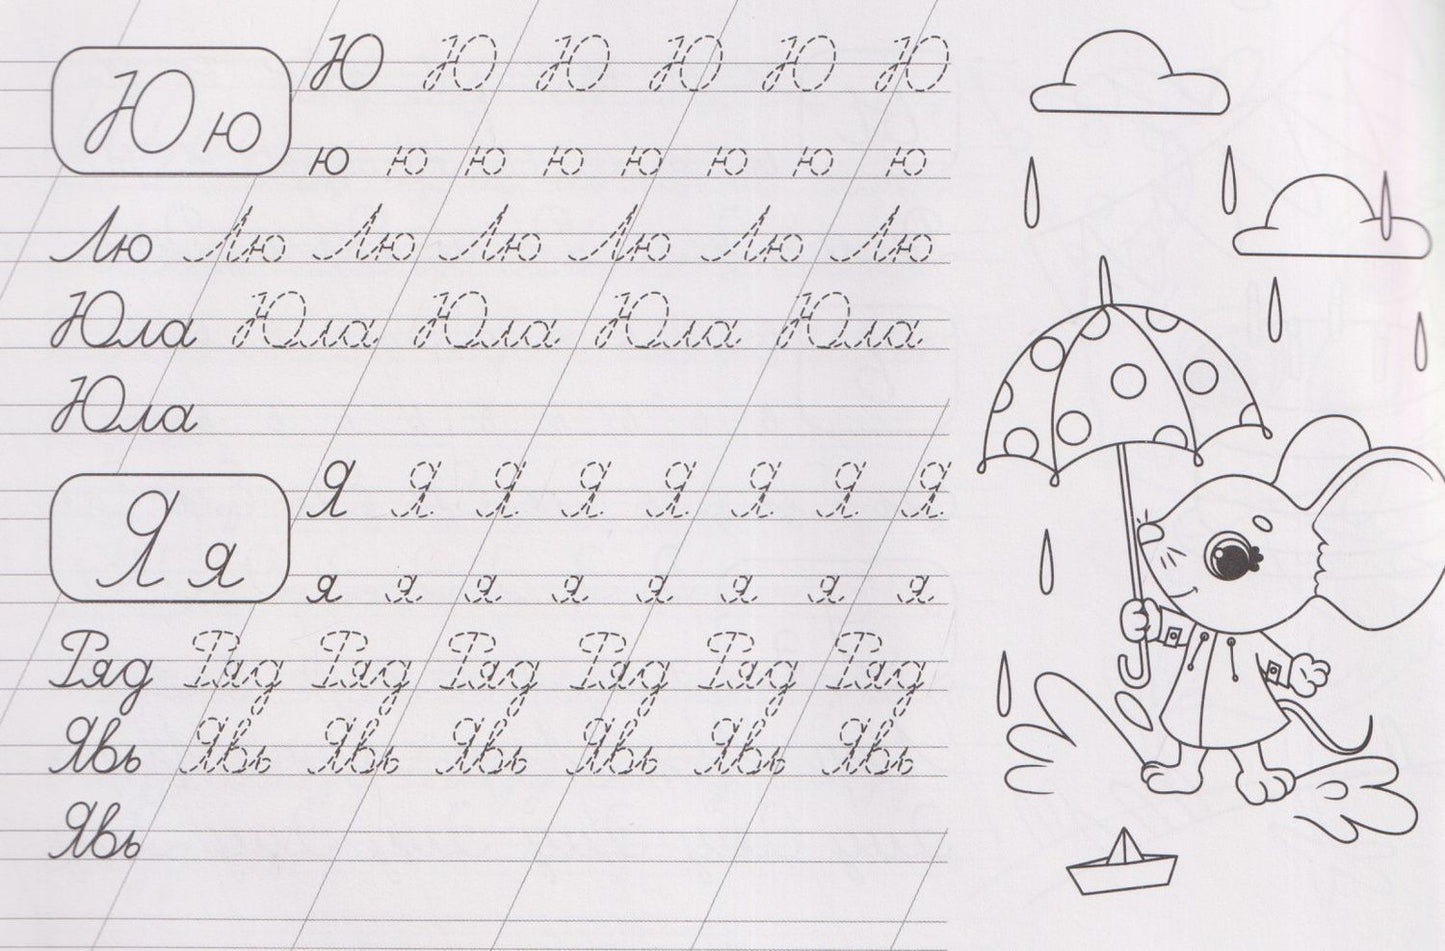 Ю ю
Ю Ю Ю Ю Ю Ю
ю ю ю ю ю ю ю ю
Лю Лю Лю Лю Лю Лю Лю
Юла Юла Юла Юла Юла
Юла
Я я
Я Я Я Я Я Я Я Я
я я я я я я я я
Ряд Ряд Ряд Ряд Ряд Ряд Ряд
Явь Явь Явь Явь Явь Явь Явь
Явь